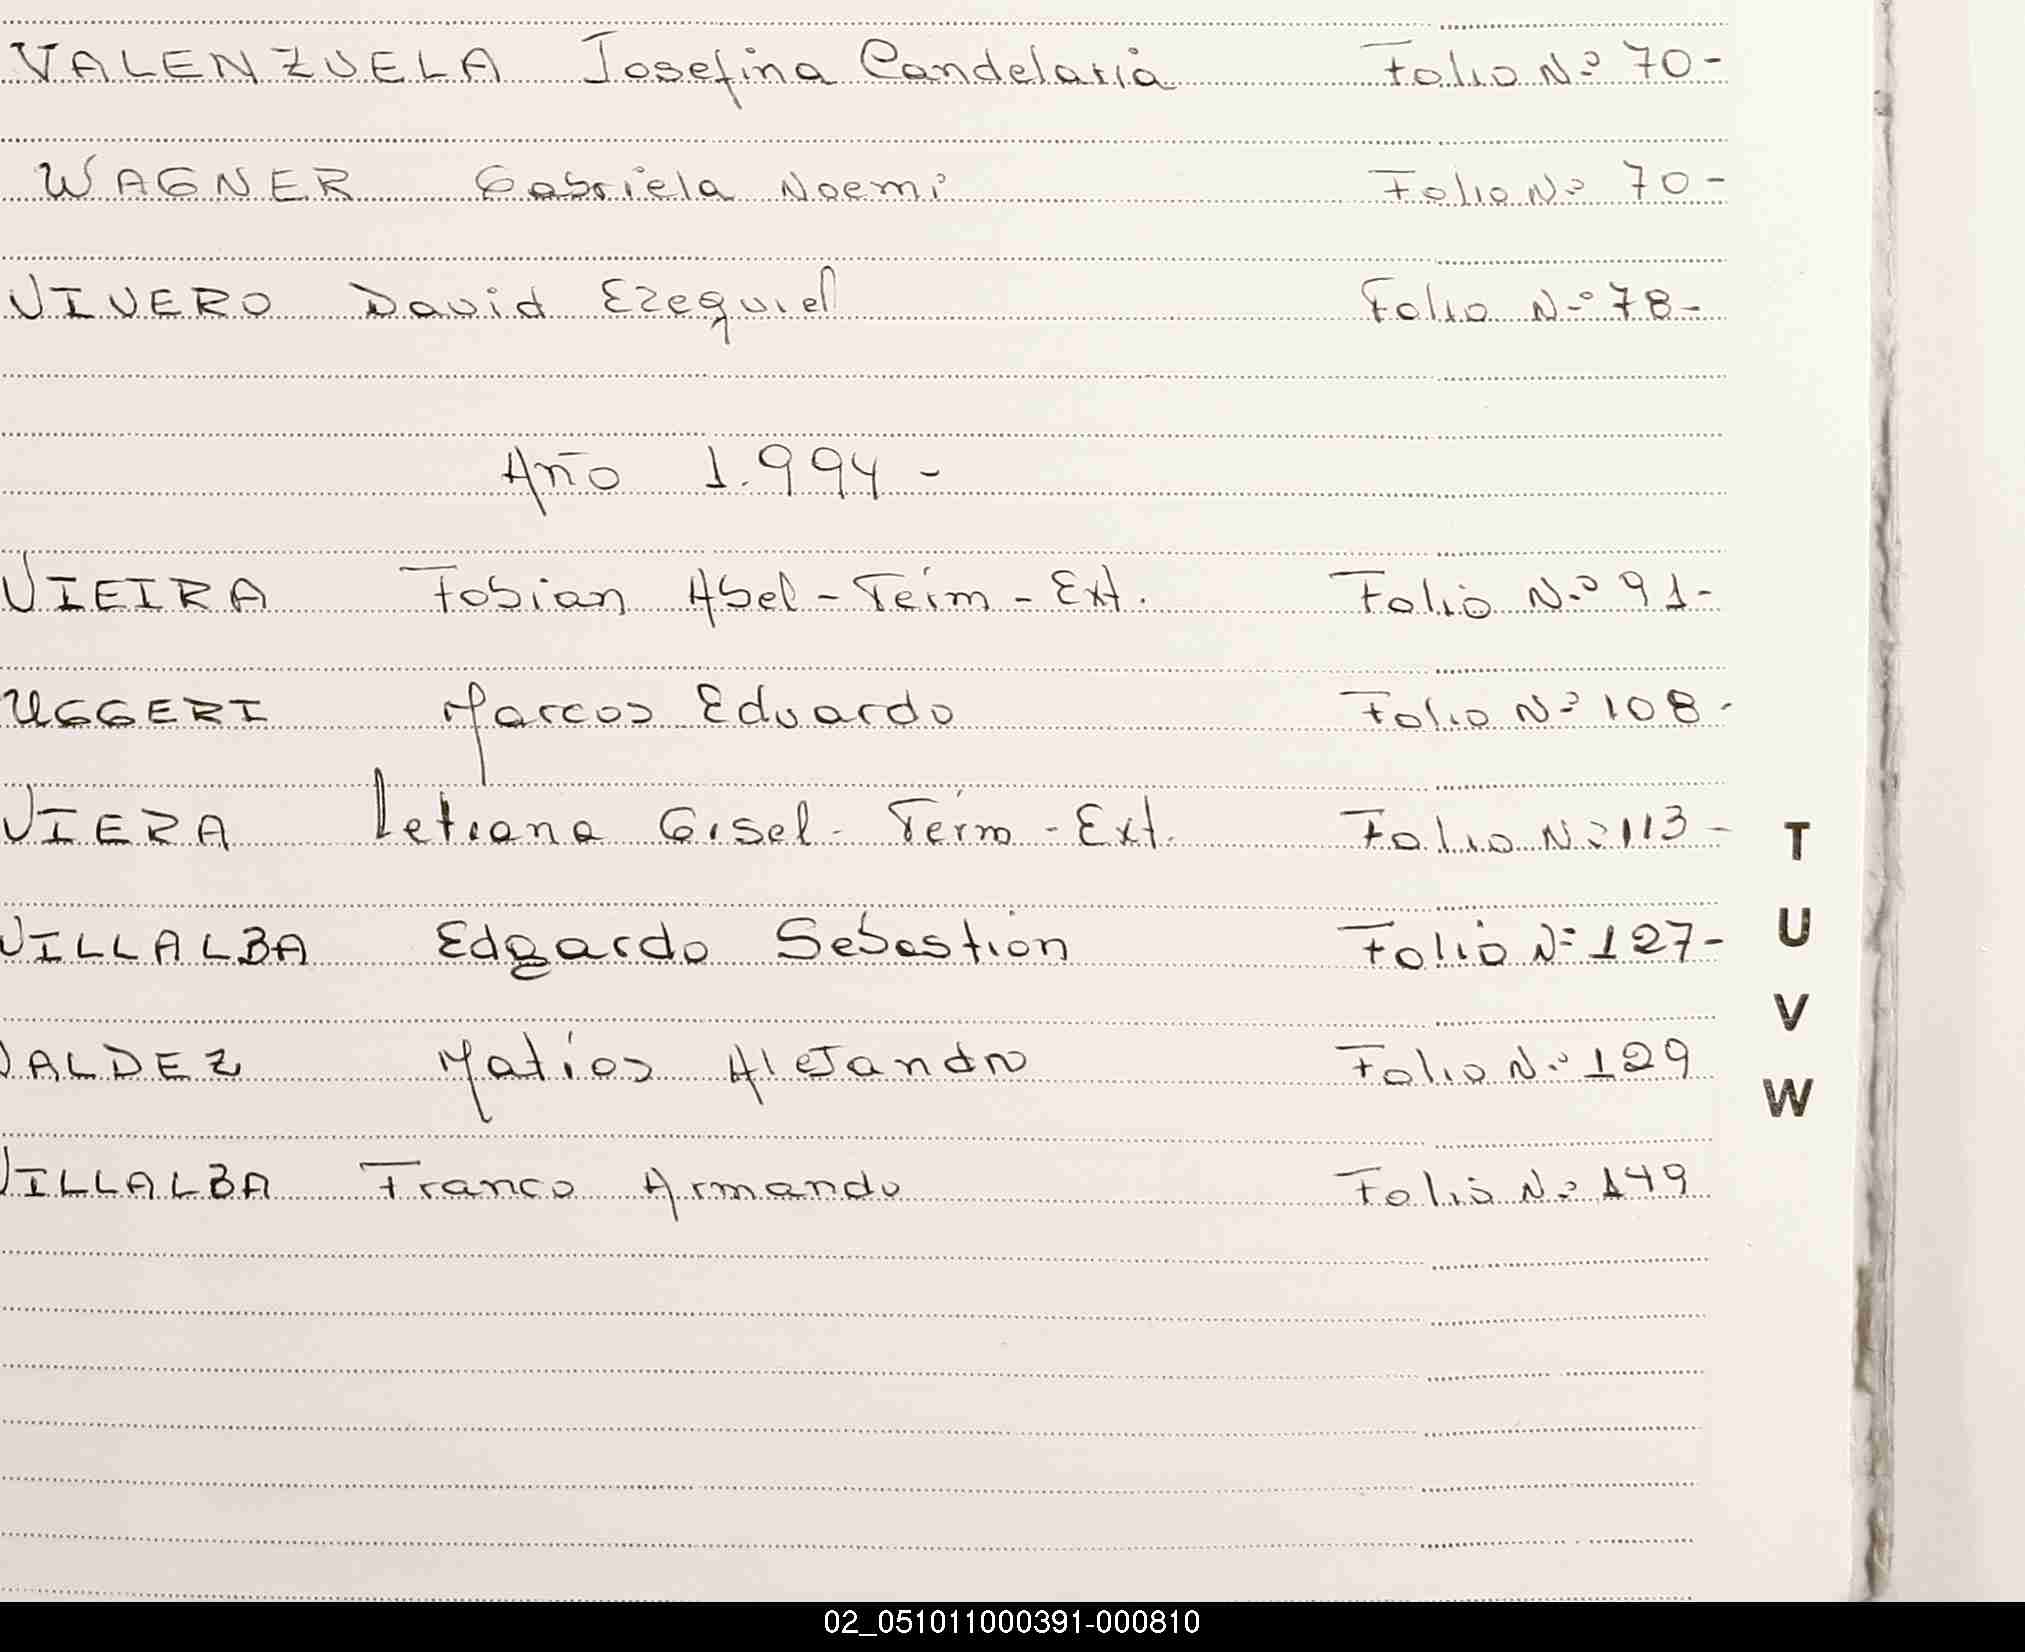 VALENZUELA Josefina Candelaria Folio Nº 70-
WAGNER Gabriela Noemi Folio Nº 70-
VIVERO David Ezequiel Folio Nº 78-
Año 1.994-
VIEIRA Fabian Abel - Term - Ext. Folio Nº 91-
UGGERI Marcos Eduardo Folio Nº 108-
VIERA Letiana Gisel - Term - Ext. Folio Nº 113-
VILLALBA Edgardo Sebastián Folio Nº 127-
VALDEZ Matías Alejandro Folio Nº 129
VILLALBA Franco Armando Folio Nº 149
T
U
V
W
02_051011000391-000810